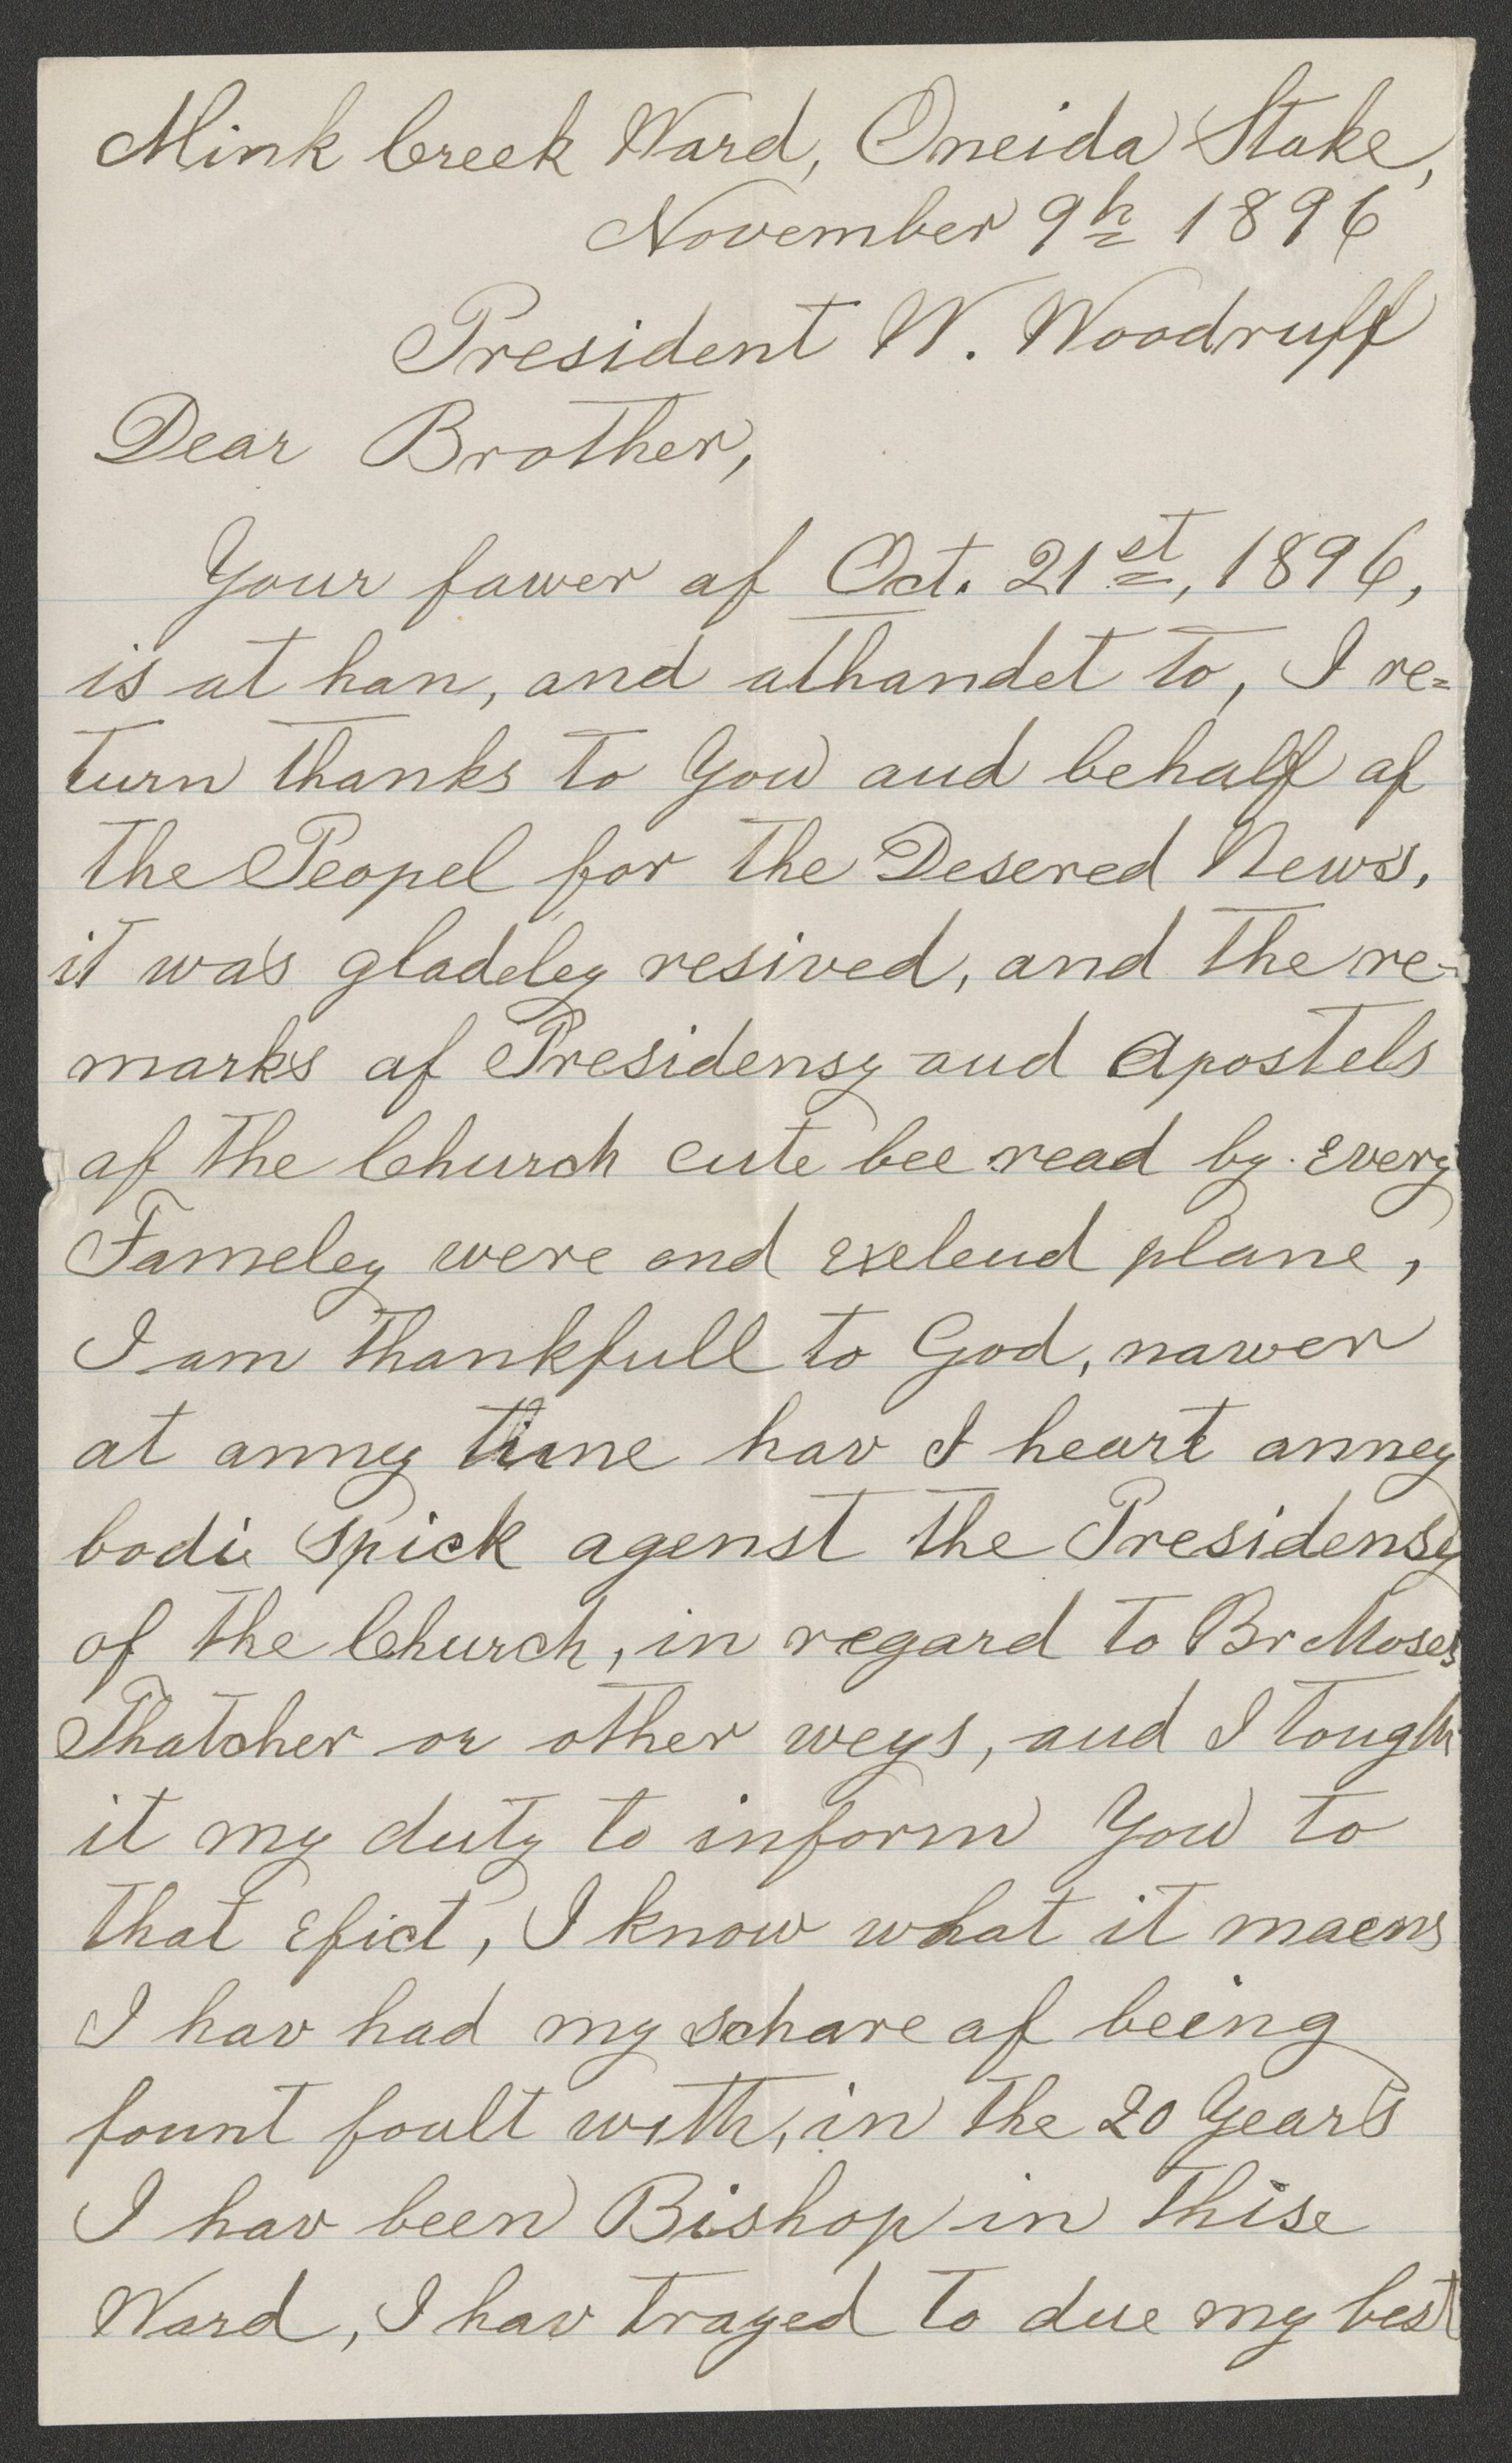 Mink Creek Ward, Oneida Stake,
November 9th 1896
President W. Woodruff
Dear Brother,
Your fawer af Oct. 21st, 1896,
is at han, and athandet to, I re=
turn thanks to You and behalf af
the Peopel for the Desered News,
it was gladeley resived, and the re-
marks af Presidensy and Apostels
af the Church cute bee read by every
Fameley were and exelend plane,
I am thankfull to God, nawer
at anny time hav I heart anney
bodi spick agenst the Presidensy
of the Church, in regard to Br Moses
Thatcher or other weys, and I tough
it my duty to inform You to
that Efict, I know what it maens
I hav had my schare af being
fount foult with, in the 20 Years
I hav been Bishop in thise
Ward, I hav trayed to due my best